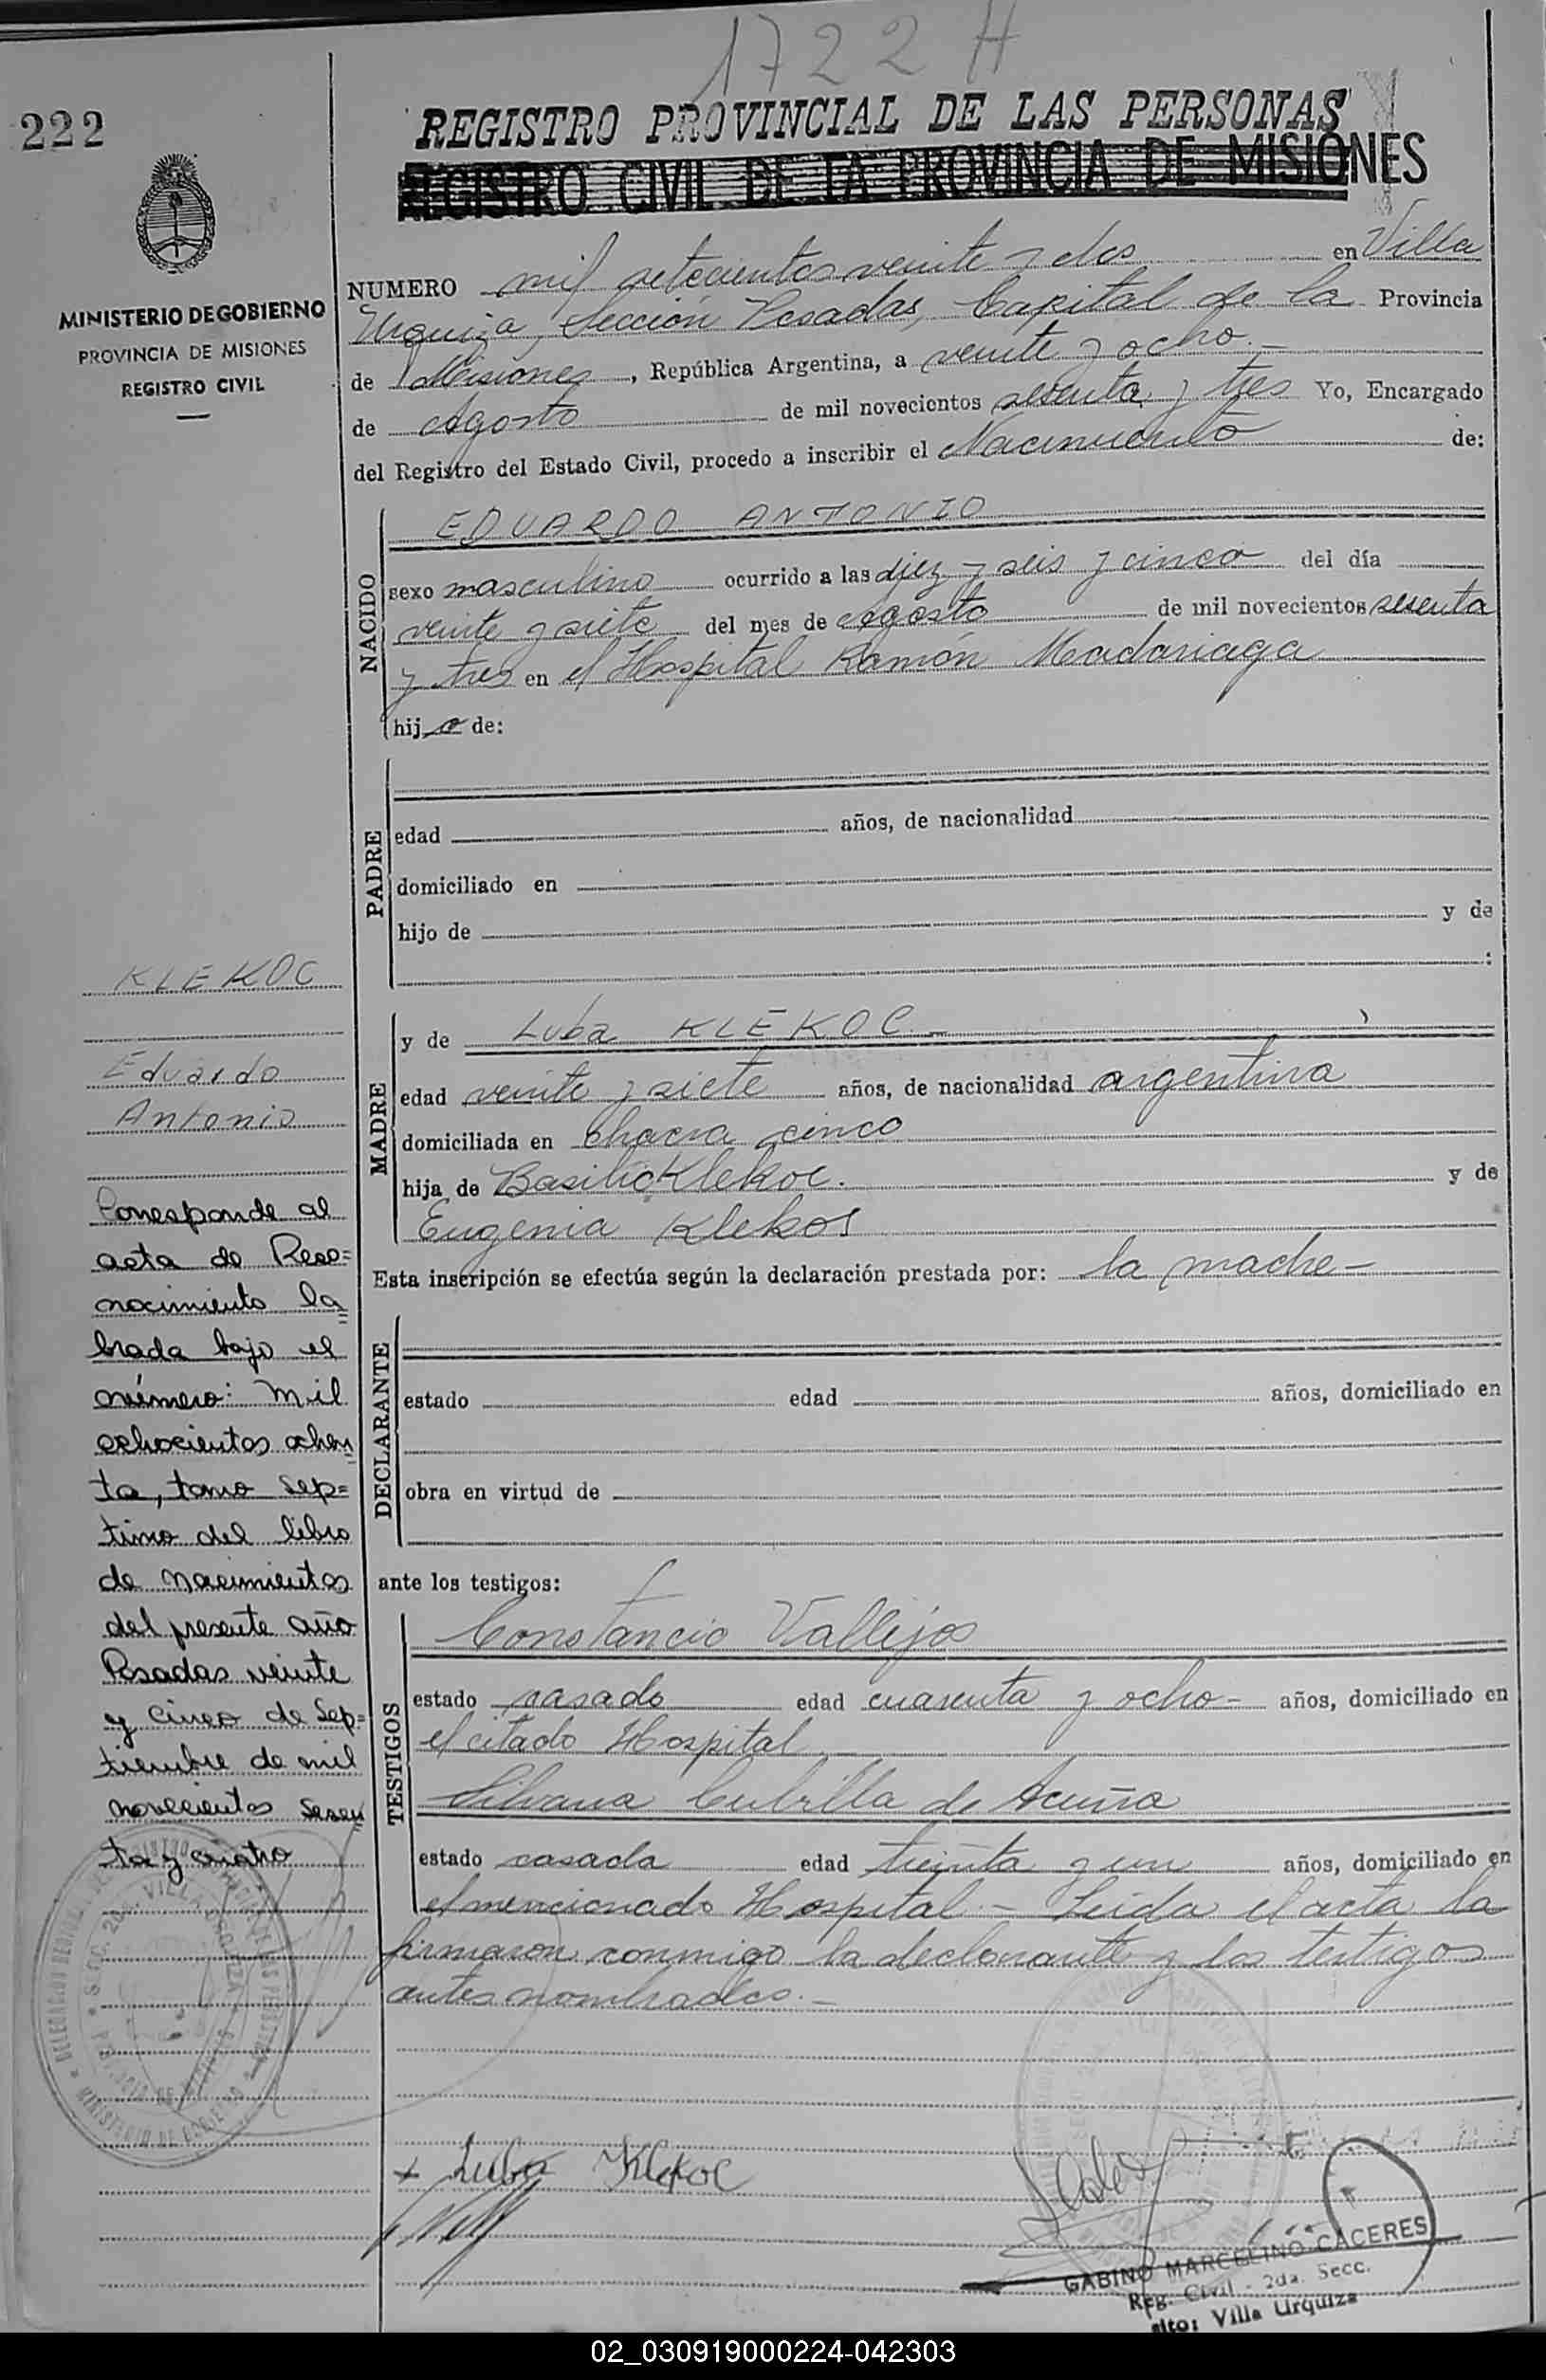 1722 H
222
REGISTRO PROVINCIAL DE LAS PERSONAS
REGISTRO CIVIL DE LA PROVINCIA DE MISIONES
MINISTERIO DE GOBIERNO
PROVINCIA DE MISIONES
REGISTRO CIVIL
NUMERO mil setecientos veinte y dos en Villa
Urquiza, Sección Posadas, Capital de la Provincia
de Misiones, República Argentina, a veinte y ocho.-
de Agosto de mil novecientos sesenta y tres Yo, Encargado
del Registro del Estado Civil, procedo a inscribir el Nacimiento de:
NACIDO
EDUARDO ANTONIO
sexo masculino ocurrido a las diez y seis y cinco del día
veinte y siete del mes de Agosto de mil novecientos sesenta
y tres en el Hospital Ramón Madariaga
hijo de:
PADRE
edad años, de nacionalidad
domiciliado en
hijo de y de
:
KLEKOC
Eduardo
Antonio
MADRE
y de Luba KLEKOC.-
edad veinte y siete años, de nacionalidad argentina
domiciliada en chacra cinco
hija de Basilio Klekoc. y de
Eugenia Klekos
Esta inscripción se efectúa según la declaración prestada por: la madre-
DECLARANTE
estado edad años, domiciliado en
obra en virtud de
ante los testigos:
TESTIGOS
Constancio Vallejos
estado casado edad cuarenta y ocho- años, domiciliado en
el citado Hospital
Silvana Cubilla de Acuña
estado casada edad treinta y un años, domiciliado en
el mencionado Hospital.- Leida el acta la
firmaron conmigo la declarante y los testigos
antes nombrados.-
Corresponde al
acta de Reco=
nocimiento la=
brada bajo el
número: mil
ochocientos ochen
ta, tomo sep=
timo del libro
de nacimientos
del presente año
Posadas veinte
y cinco de Sep=
tiembre de mil
novecientos sesen
ta y cuatro
+ Luba Klekoc
GABINO MARCELINO CACERES
Reg. Civil - 2da. Secc.
Villa Urquiza
02_030919000224-042303